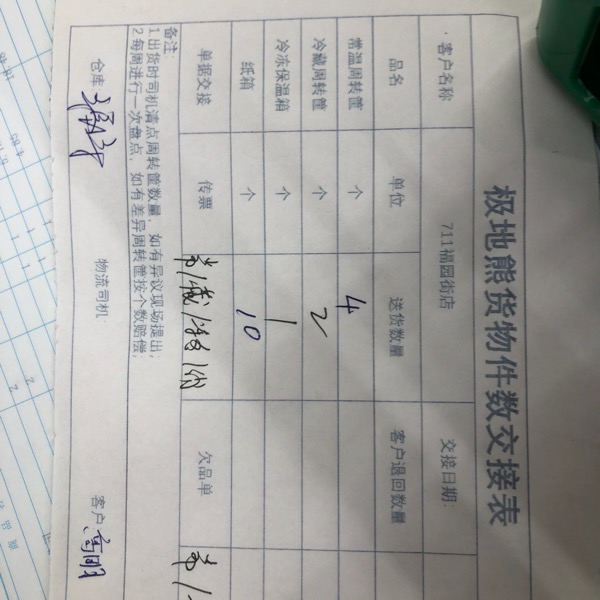 极地熊货物件数交接表
·客户名称 711福园街店 交接日期:
品名 单位 送货数量 客户退回数量
常温周转筐 个 4
冷藏周转筐 个 2
冷冻保温箱 个 1
纸箱 个 10
单据交接 传票 欠品单
备注:
1.出货时司机清点周转筐数量，如有异议现场提出;
2.每周进行一次盘点，如有差异周转筐按个数赔偿;
仓库: 物流司机: 客户: